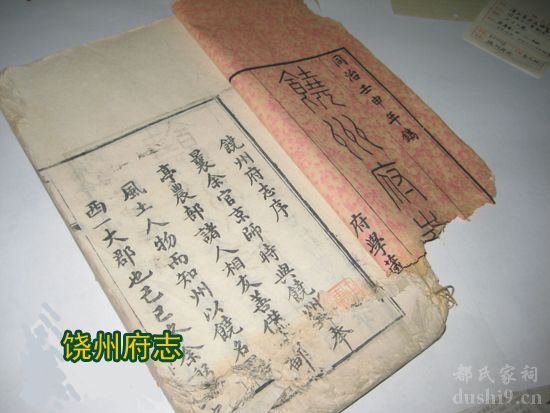 同治壬申年鐫
饒州府
府學藏
饒州府志序
曩余官京師時與饒州 奉
亭農部諸人相友善
風土人物而知州以饒名
西一大郡也己巳 余
饶州府志
都氏家祠
dushi9.cn